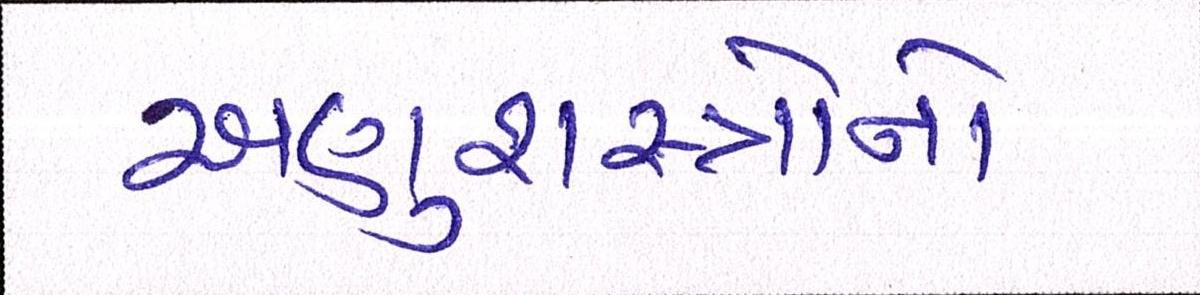 અણુશસ્ત્રોનો